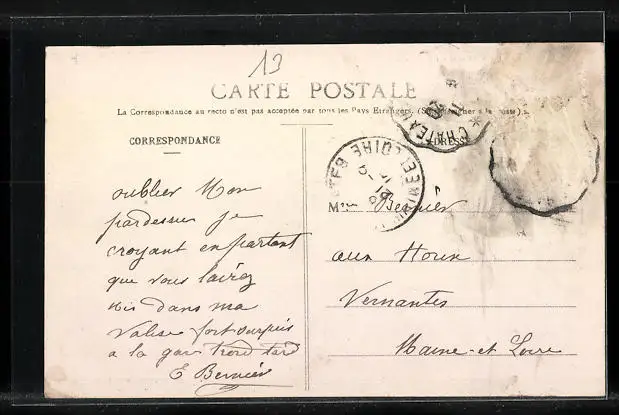 13
CARTE POSTALE
La Correspondance au recto n'est pas acceptée par tous les Pays Etrangers. (Se renseigner à la Poste).
CORRESPONDANCE
ADRESSE
CHATEAU
LOIRE
oublier Mon
pardessus je
croyant en partant
que vous l'aviez
mis dans ma
Valise fort surpris
a la gare trop tard
E Bernier
Mme Bernier
aux Houx
Vernantes
Maine-et Loire